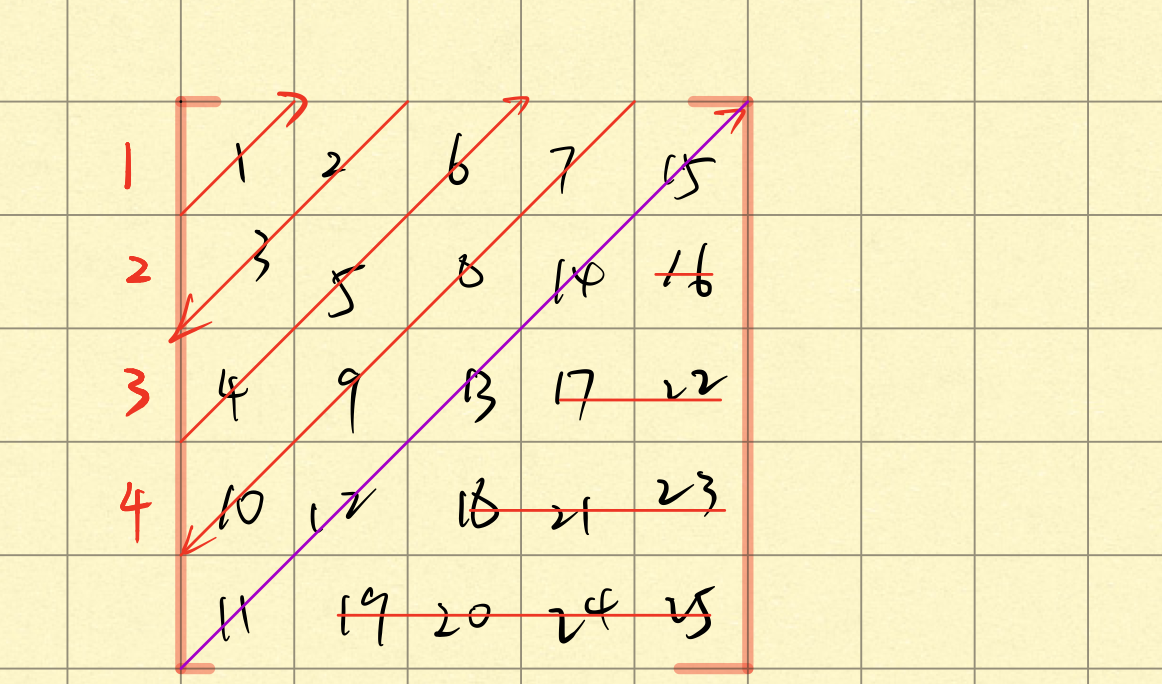 1 1 2 6 7 15
2 3 5 8 14 16
3 4 9 13 17 22
4 10 12 18 21 23
11 19 20 24 25